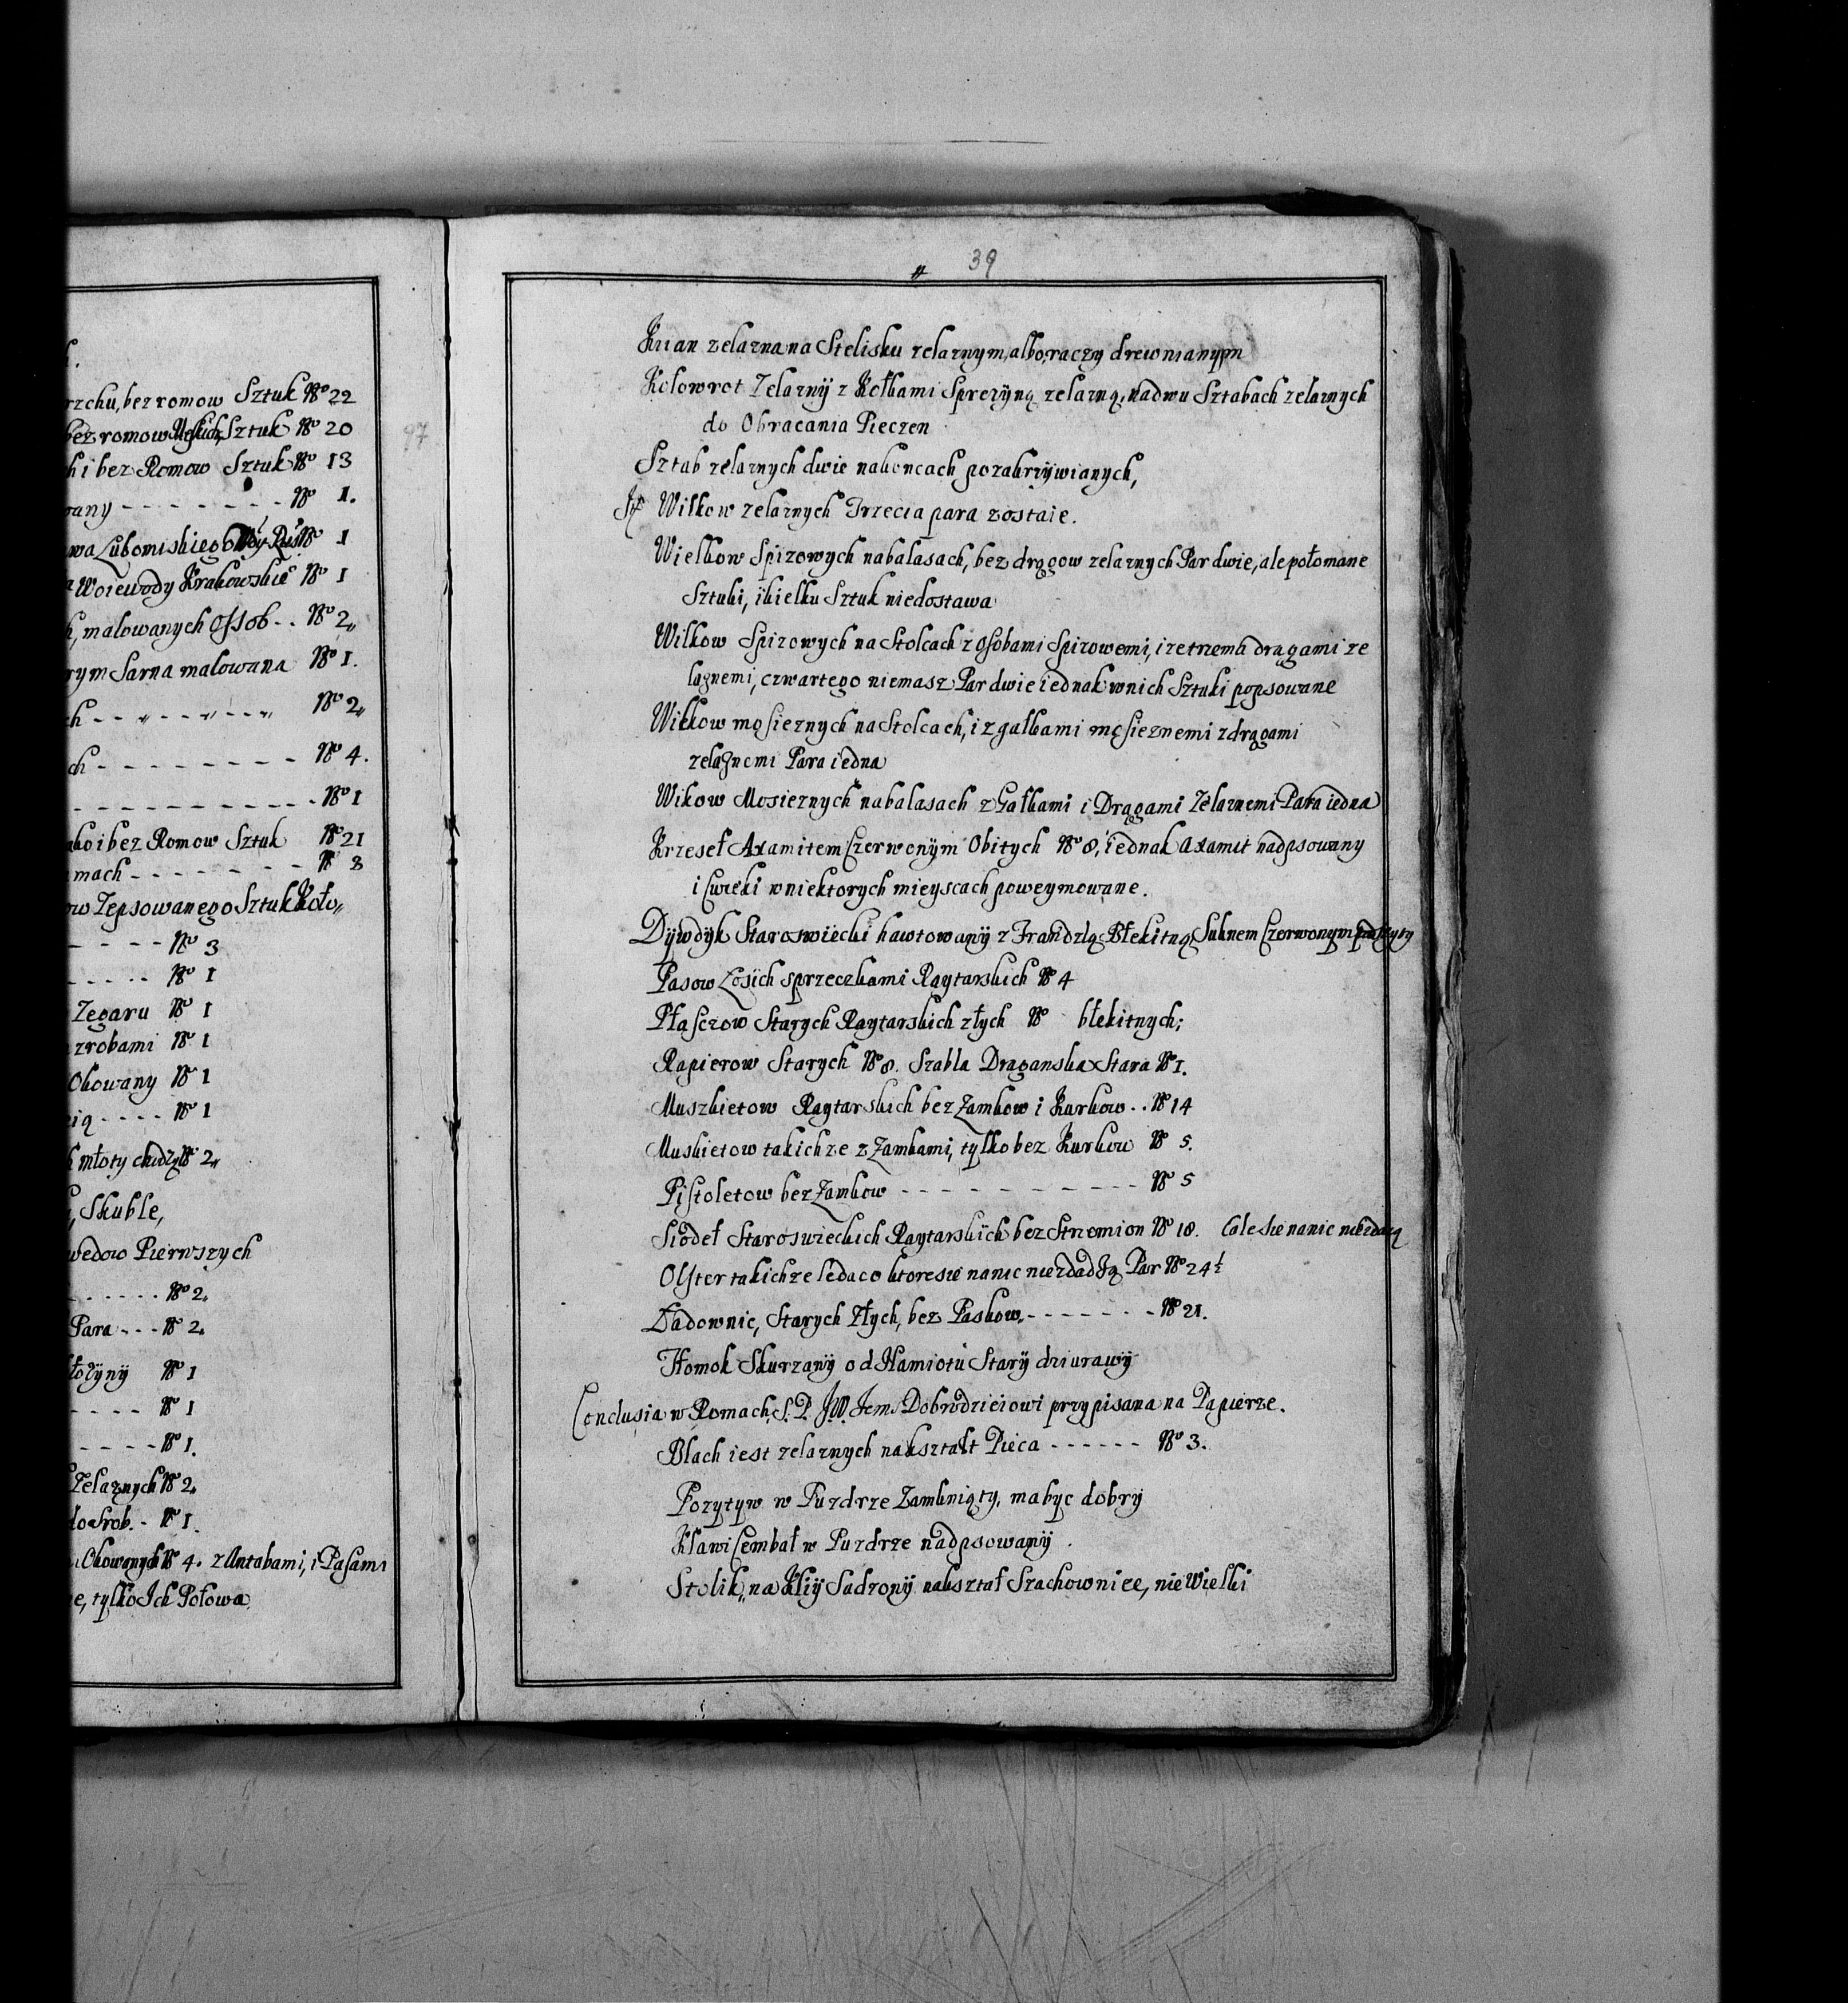 rzchu, bez romow Sztuk No 22
bez romow Sztuk No 20
h i bez Romow Sztuk No 13
wany - - - - - - - No 1.
wa Lubomiskiego No 1
a Woiewody Krakowskie No 1
h, malowanych Ossob . . No 2,,
rym Sarna malowana No 1.
ch - - - - - - No 2,,
ch - - - - - - - - No 4.
- - - - - - - - - - - No 1
ako i bez Romow Sztuk No 21
mach - - - - - - - No 3
ow Zepsowanego Sztuk Koło,,
- - - - No 3
- - - - - No 1
Zegaru No 1
zrobami No 1
Okowany No 1
nią - - - - No 1
młoty No 2,,
, Skuble,
wedow Pierwszych
- - - - - - No 2,,
Para - - - No 2.
No 1
- - - - No 1
- - - - - No 1.
Zelaznych No 2,,
No 1.
Okowanych No 4. z Antabami, i Pasami
e, tylko Ich Połowa
97
39
zelazna na Stelisku zelaznym, albo raczy drewnianym
Kołowrot Zelazny z Kołkami Sprezyną zelazną, na dwu Sztabach zelaznych
do Obracania Pieczen
Sztab zelaznych dwie na koncach pozakrzywianych,
Wilkow zelaznych Trzecia para zostaie.
Wielkow Spizowych na balasach, bez drągow zelaznych Par dwie, ale połomane
Sztuki, i kielku Sztuk niedostawa
Wilkow Spizowych na Stolcach z Osobami Spizowemi, i ze trzema drągami ze
laznemi, czwartego niemasz Par dwie iednak w nich Sztuki popsowane
Wilkow mosieznych na Stolcach, i z gałkami mosieznemi z drągami
zelaznemi Para iedna
Wikow Mosieznych na balasach z Gałkami i Drągami Zelaznemi Para iedna
Krzeseł Axamitem Czerwonym Obitych No 8, iednak Axamit nadpsowany
i Cwieki w niektorych mieyscach poweymowane.
Dywdyk Staroswiecki hawtowany z Frandzlą Błekitną Suknem Czerwonym podszyty
Pasow Łosich sprzeczkami Raytarskich No 4
Płasczow Starych Raytarskich złych No błekitnych;
Rapierow Starych No 8. Szabla Draganska Stara No 1.
Muszkietow Raytarskich bez Zamkow i Kurkow . . No 14
Muskietow takichze z Zamkami, tylko bez Kurkow No 5.
Pistoletow bez Zamkow - - - - - - - - - - - No 5
Siodeł Staroswieckich Raytarskich bez Strzemion No 18. Cale sie na nic niezdadzą
Olster takichze ledaco ktore sie na nic niezdadzą Par No 24½
Ładownic, Starych Złych, bez Paskow,, - - - - - - - No 21.
Tłomok Skurzany od Namiotu Stary dziurawy
Conclusia w Romach, S. P. J. W. Jemći Dobrodzieiowi przypisana na Papierze.
Blach iest zelaznych na kształt Pieca - - - - - - No 3.
Pozytyw w Puzdrze Zamknięty, ma byc dobry
Klawicembał w Puzdrze nadpsowany .
Stolik,, na Kliy Sadzony nakształ Szachownice, nie Wielki